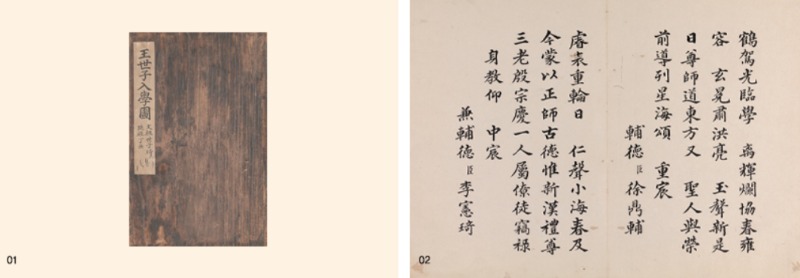 王世子入學圖
01
鶴駕光臨學 离輝爛協春雍
容 玄冕肅洪亮 玉聲新是
日尊師道東方又 聖人與榮
前導列星海頌 重宸
輔德臣徐鼎輔
睿表重輪日 仁聲小海春及
今蒙以正師古德惟新漢禮尊
三老殷宗慶一人屬僚徒竊祿
身教仰 中宸
兼輔德臣李憲琦
02